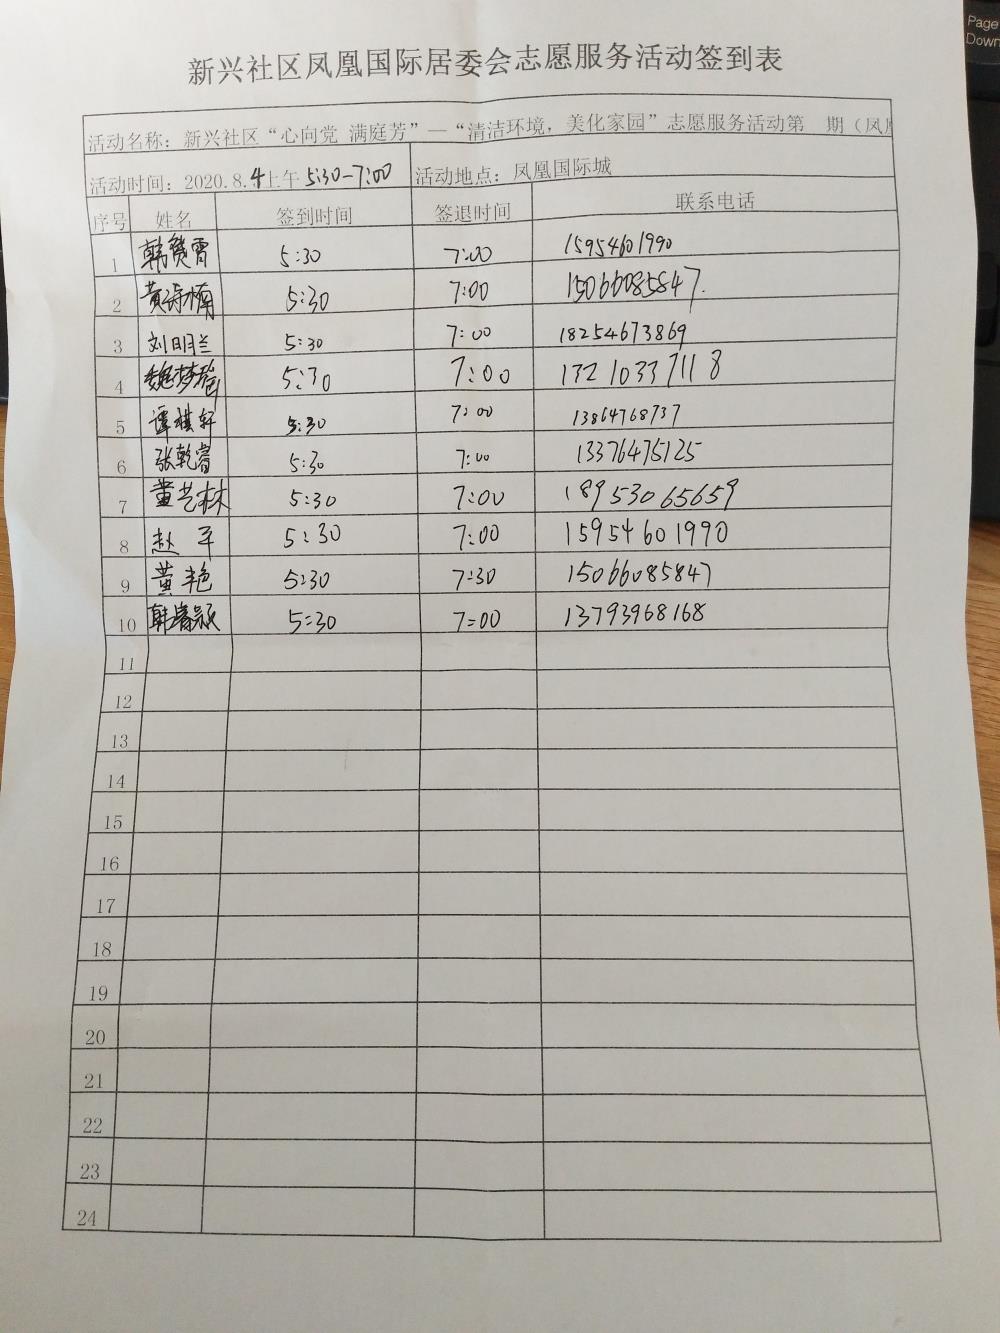 Page
Down
新兴社区凤凰国际居委会志愿服务活动签到表
活动名称：新兴社区“心向党 满庭芳”—“清洁环境，美化家园”志愿服务活动第 期（凤凰
活动时间：2020.8.4上午 5:30-7:00 活动地点：凤凰国际城
序号 姓名 签到时间 签退时间 联系电话
1 韩霄 5:30 7:00 15954601990
2 黄诗楠 5:30 7:00 15066085847.
3 刘明兰 5:30 7:00 18254673869
4 魏梦 5:30 7:00 13210337118
5 谭祺轩 5:30 7:00 13864768737
6 张乾睿 5:30 7:00 13376475125
7 董艺林 5:30 7:00 18953065659
8 赵平 5:30 7:00 15954601990
9 黄艳 5:30 7:30 15066085847
10 韩 5:30 7:00 13793968168
11
12
13
14
15
16
17
18
19
20
21
22
23
24